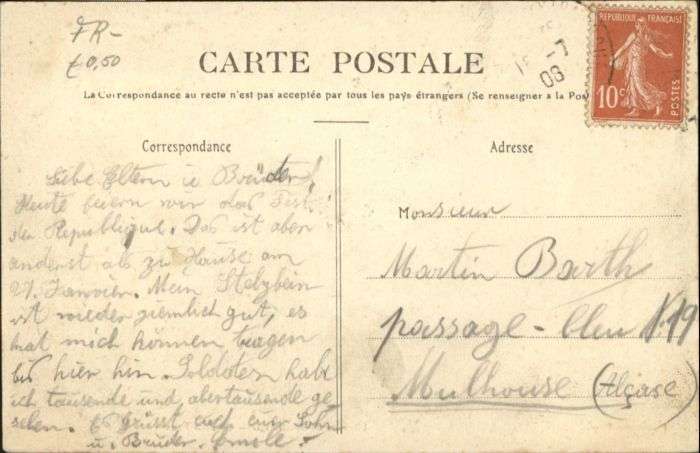 FR-
€0,50
CARTE POSTALE
La Correspondance au recto n'est pas acceptée par tous les pays étrangers (Se renseigner à la Pos
REPUBLIQUE FRANÇAISE
10c
POSTES
-7
08
Correspondance
Liebe Eltern u Brüder!
Heute feiern wir das Fest
der Republique. Das ist aber
anderst als zu Hause am
27. Janvier. Mein Stelzbein
ist wieder ziemlich gut, es
hat mich können tragen
bis hier hin. Soldaten habe
ich tausende und abertausende ge
sehen. Es grüsst euch euer Sohn
u. Bruder. Emile.
Adresse
Monsieur
Martin Barth
passage-bleu N19
Mulhouse (Alçase)